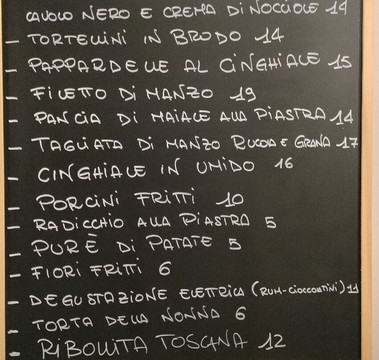 CAVOLO NERO E CREMA DI NOCCIOLE 14
- TORTELLINI IN BRODO 14
- PAPPARDELLE AL CINGHIALE 15
- FILETTO DI MANZO 19
- PANCIA DI MAIALE ALLA PIASTRA 14
- TAGLIATA DI MANZO RUCOLA E GRANA 17
- CINGHIALE IN UMIDO 16
- PORCINI FRITTI 10
- RADICCHIO ALLA PIASTRA 5
- PURÈ DI PATATE 5
- FIORI FRITTI 6
- DEGUSTAZIONE ELETTRICA (RUM-CIOCCOATINI) 11
- TORTA DELLA NONNA 6
- RIBOLLITA TOSCANA 12